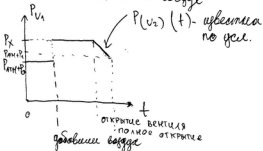 P_V₁
P(v₂)(t) - известна
по усл.
P_x
P_атм+P₁
P_атм+P₀
0
t
открытие вентиля
полное открытие
добавили воздуха